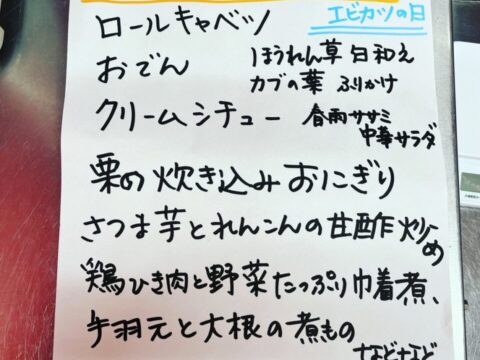 ロールキャベツ
エビカツの日
おでん
ほうれん草 白和え
カブの葉 ふりかけ
クリームシチュー
春雨ササミ
中華サラダ
栗の炊き込みおにぎり
さつま芋とれんこんの甘酢炒め
鶏ひき肉と野菜たっぷり巾着煮、
手羽元と大根の煮もの
などなど